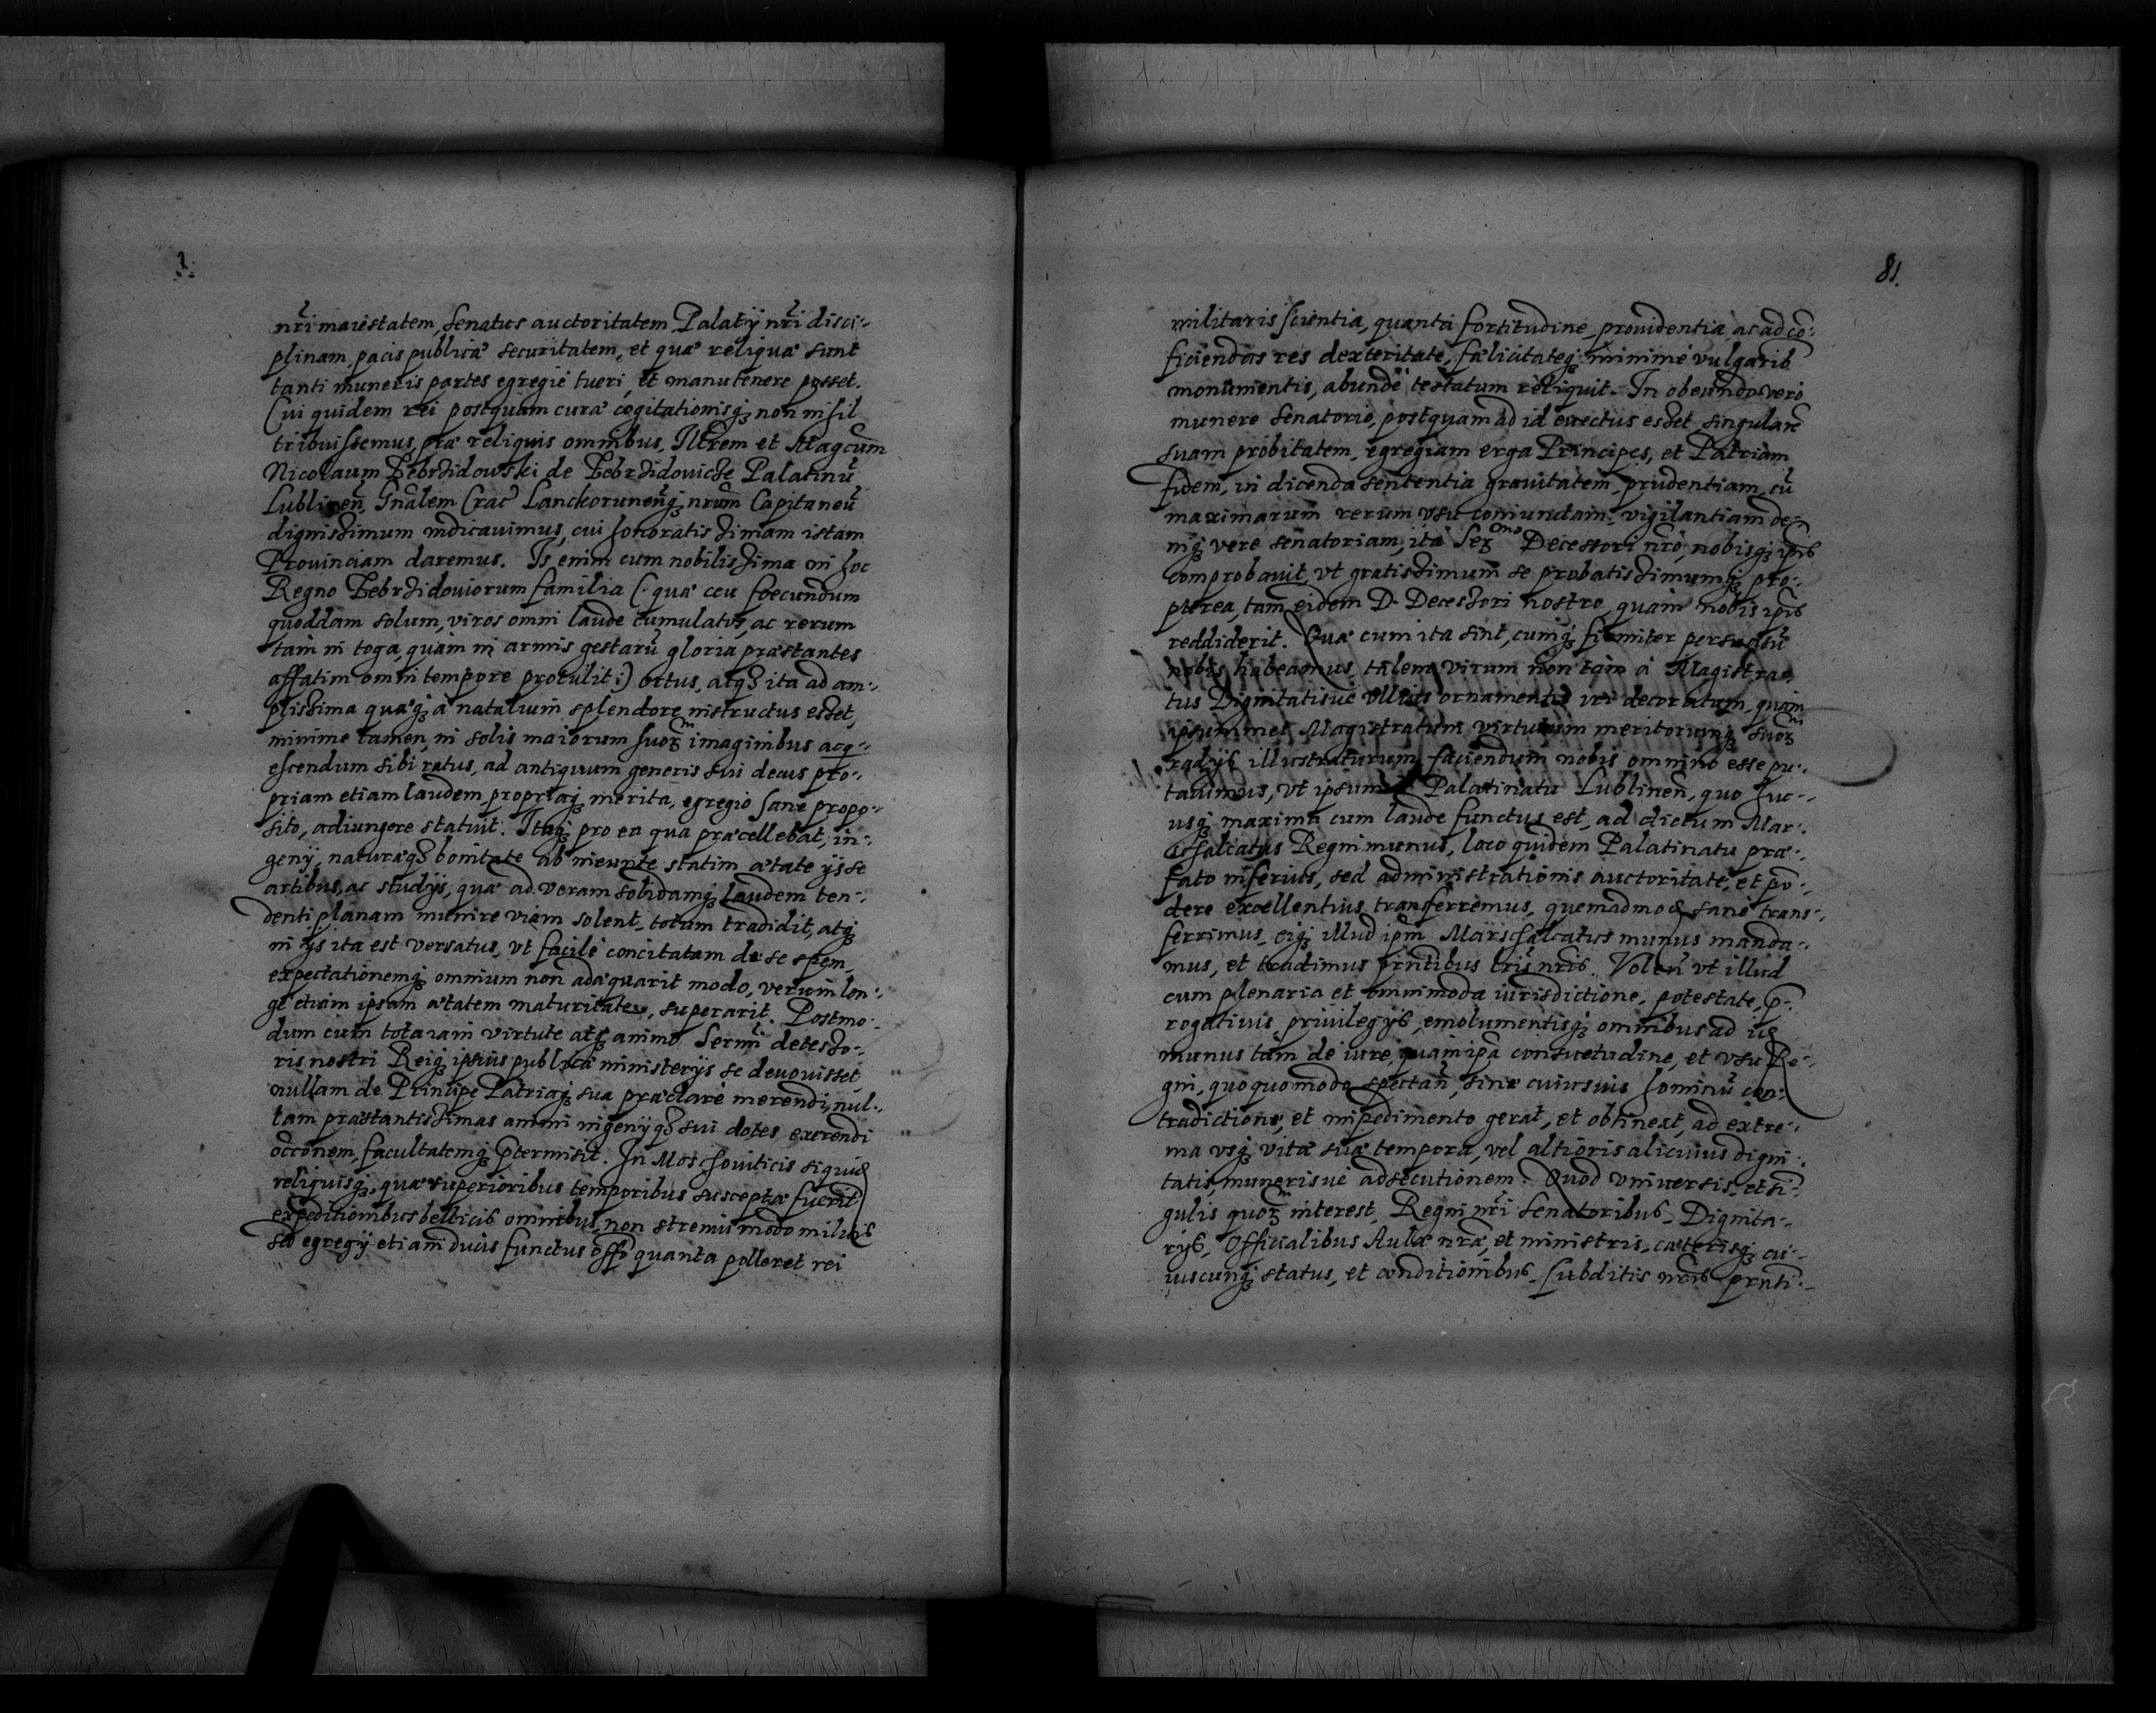 nr̃i maiestatem, Senatus auctoritatem, Palatij nr̃i disci-
plinam, pacis publicæ securitatem, et quæ reliquæ sunt
tanti muneris partes egregiè tueri, et manutenere posset.
Cui quidem rei postquam curæ cogitationisq; non nihil
tribuissemus, præ reliquis omnibus, Illrem et Magcum
Nicolaum Zebrzidowski de Zebrzidovicze Palatinũ
Lublinen̄, Gñalem Crac̃ Lanckorunenq; nrum Capitaneũ
dignissimum indicauimus, cui honoratissimam istam
Prouinciam daremus. Is enim cum nobilissima in hoc
Regno Zebrzidouiorum familia (: quæ ceu foecundum
quoddam solum, viros omni laude cumulatos, ac rerum
tàm in toga, quàm in armis gestarũ gloria præstantes
affatim omni tempore protulit :) ortus, atq; ita ad am-
plissima quæq; à natalium splendore instructus esset,
minime tamen, in solis maiorum suoȝ imaginibus acq-
escendum sibi ratus, ad antiquum generis sui decus pro-
priam etiam laudem, propriaq; merita, egregio sane propo-
sito, adiungere statuit. Itaq; pro ea qua præcellebat, in-
genij, naturæq; bonitate ab ineunte statim ætate ijs se
artibus, ac studijs, quæ ad veram solidamq; laudem ten-
denti planam munire viam solent, totum tradidit, atq;
in ijs ita est versatus, vt facilè concitatam de se spem,
expectationemq; omnium non adæquarit modo, verum lon-
gè etiam ipsam ætatem maturitate, superarit. Postmo-
dum cum tota iam virtute atq; animo Sermi decesso-
ris nostri Reiq; ipsius publicæ ministerijs se deuouisset,
nullam de Principe Patriaq; sua præclarè merendi, nul-
lam præstantissimas animi ingenijq; sui dotes exerendi
occõnem, facultatemq; ptermisit. In Moschouiticis siquid
reliquisq;, quæ superioribus temporibus susceptæ fuerũt
expeditionibus bellicis omnibus, non strenui modo militis
sed egregij etiam ducis functus offo quanta polleret rei
81.
militaris scientia, quanta fortitudine, prouidentia, ac ad cõ-
ficiendas res dexteritate, fælicitateq; minimè vulgarib
monumentis, abundè testatum reliquit. In obeundo vero
munere Senatorio, postquam ad id euectus esset, singularẽ
suam probitatem, egregiam erga Principes, et Patriam
fidem, in dicenda sententia grauitatem, prudentiam, cũ
maximarum rerum vsu coniunctam, vigilantiam de-
niq; vere senatoriam, ita Serᵐᵒ Decessori nr̃o, nobisq; ipsis
comprobauit, vt gratissimum se probatissimumq; pro-
pterea, tam eidem D. Decessori nostro, quàm nobis ipsis
reddiderit. Quæ cum ita sint, cumq; firmiter persuasũ
nobis habeamus, talem virum non tàm à Magistra-
tus Dignitatisue vllius ornamentis iri decoratum, quàm
ipsummet Magistratum virtutum meritorumq; suoȝ
radijs illustraturum, faciendum nobis omnino esse pu-
tauimus, vt ipsum Palatinatu Lublinen̄, quo huc-
usq; maxima cum laude functus est, ad dictum Mar-
schalcatus Regni munus, loco quidem Palatinatu præ-
fato inferius, sed administrationis auctoritate, et põ-
dere excellentius, transferremus, quemadmod sanè trans-
ferrimus, eiq; illud ipm Marschalcatus munus manda-
mus, et tradimus pñtibus lris nr̃is. Volen̄ vt illud
cum plenaria et omnimoda iurisdictione, potestate, p-
rogatiuis, priuilegijs, emolumentisq; omnibus ad id
munus tàm de iure, quàm ipa consuetudine, et vsu Re-
gni, quoquomodo spectan̄, sine cuiusuis hominũ con-
tradictione, et impedimento gerat, et obtineat, ad extre-
ma vsq; vitæ suæ tempora, vel altioris alicuius digni-
tatis, munerisue adsecutionem. Quod vniuersis, et sĩ-
gulis quoȝ interest, Regni nr̃i Senatoribus, Dignita-
rijs, Officialibus Aulæ nr̃æ, et ministris, cæterisq; cu-
iuscunq; status, et conditionibus, Subditis nr̃is pñti-